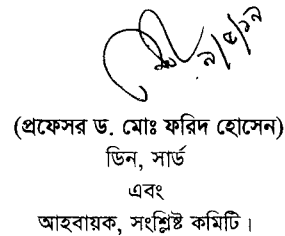 ৯/৫/১৯
(প্রফেসর ড. মোঃ ফরিদ হোসেন)
ডিন, সার্ড
এবং
আহবায়ক, সংশ্লিষ্ট কমিটি।